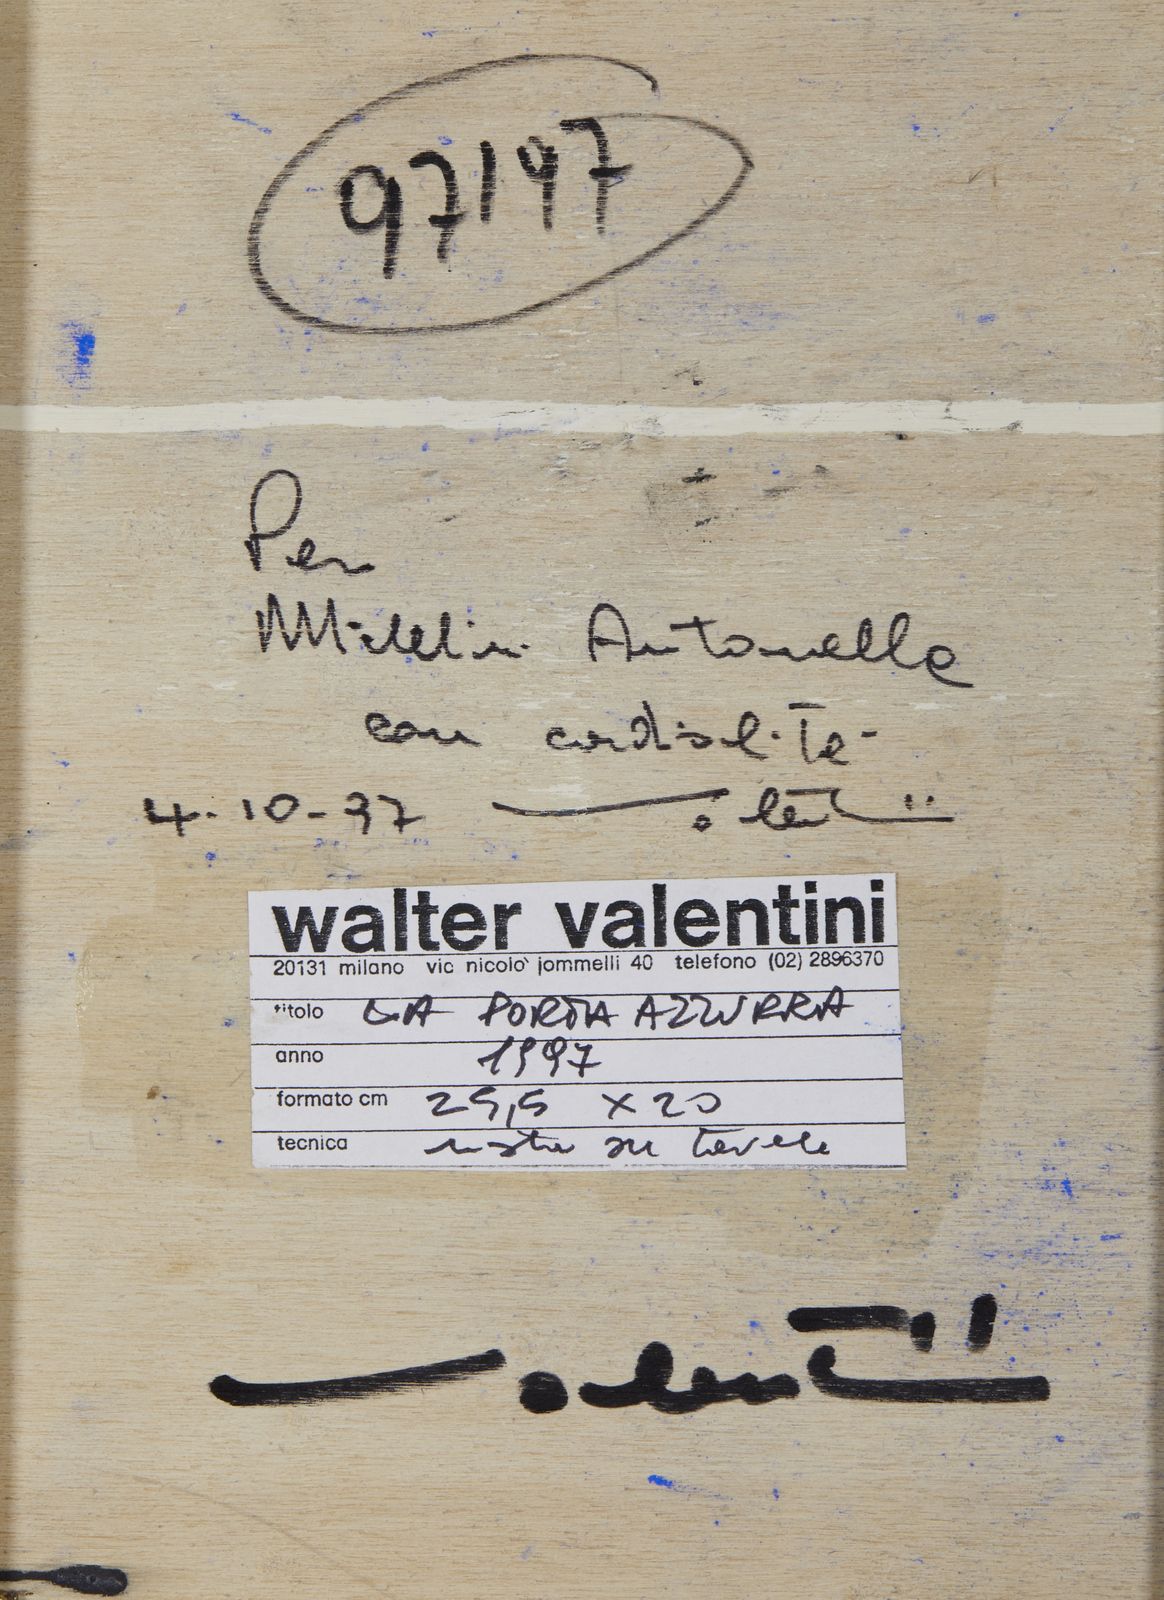 97/97
Per
Antonella
con cordialità
4-10-97 Valentini
walter valentini
20131 milano via nicolo' jommelli 40 telefono (02) 2896370
titolo LA PORTA AZZURRA
anno 1997
formato cm 25,5 x 20
tecnica mista su tavola
Valentini